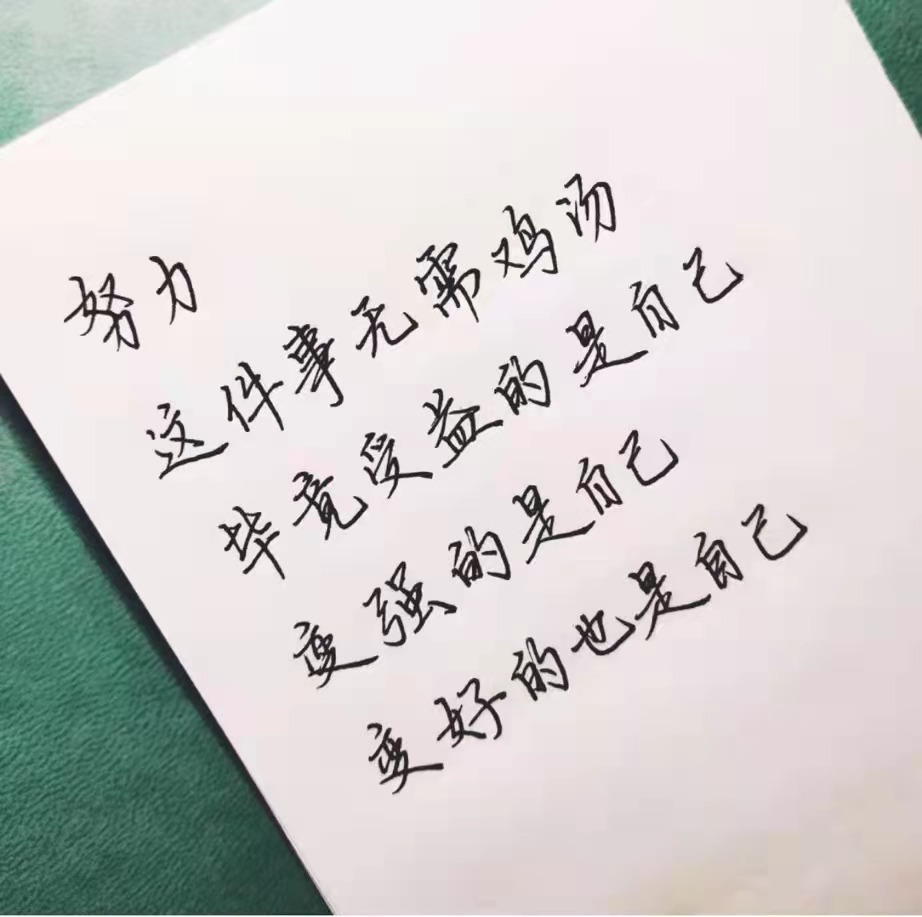 努力
这件事无需鸡汤
毕竟受益的是自己
变强的是自己
变好的也是自己